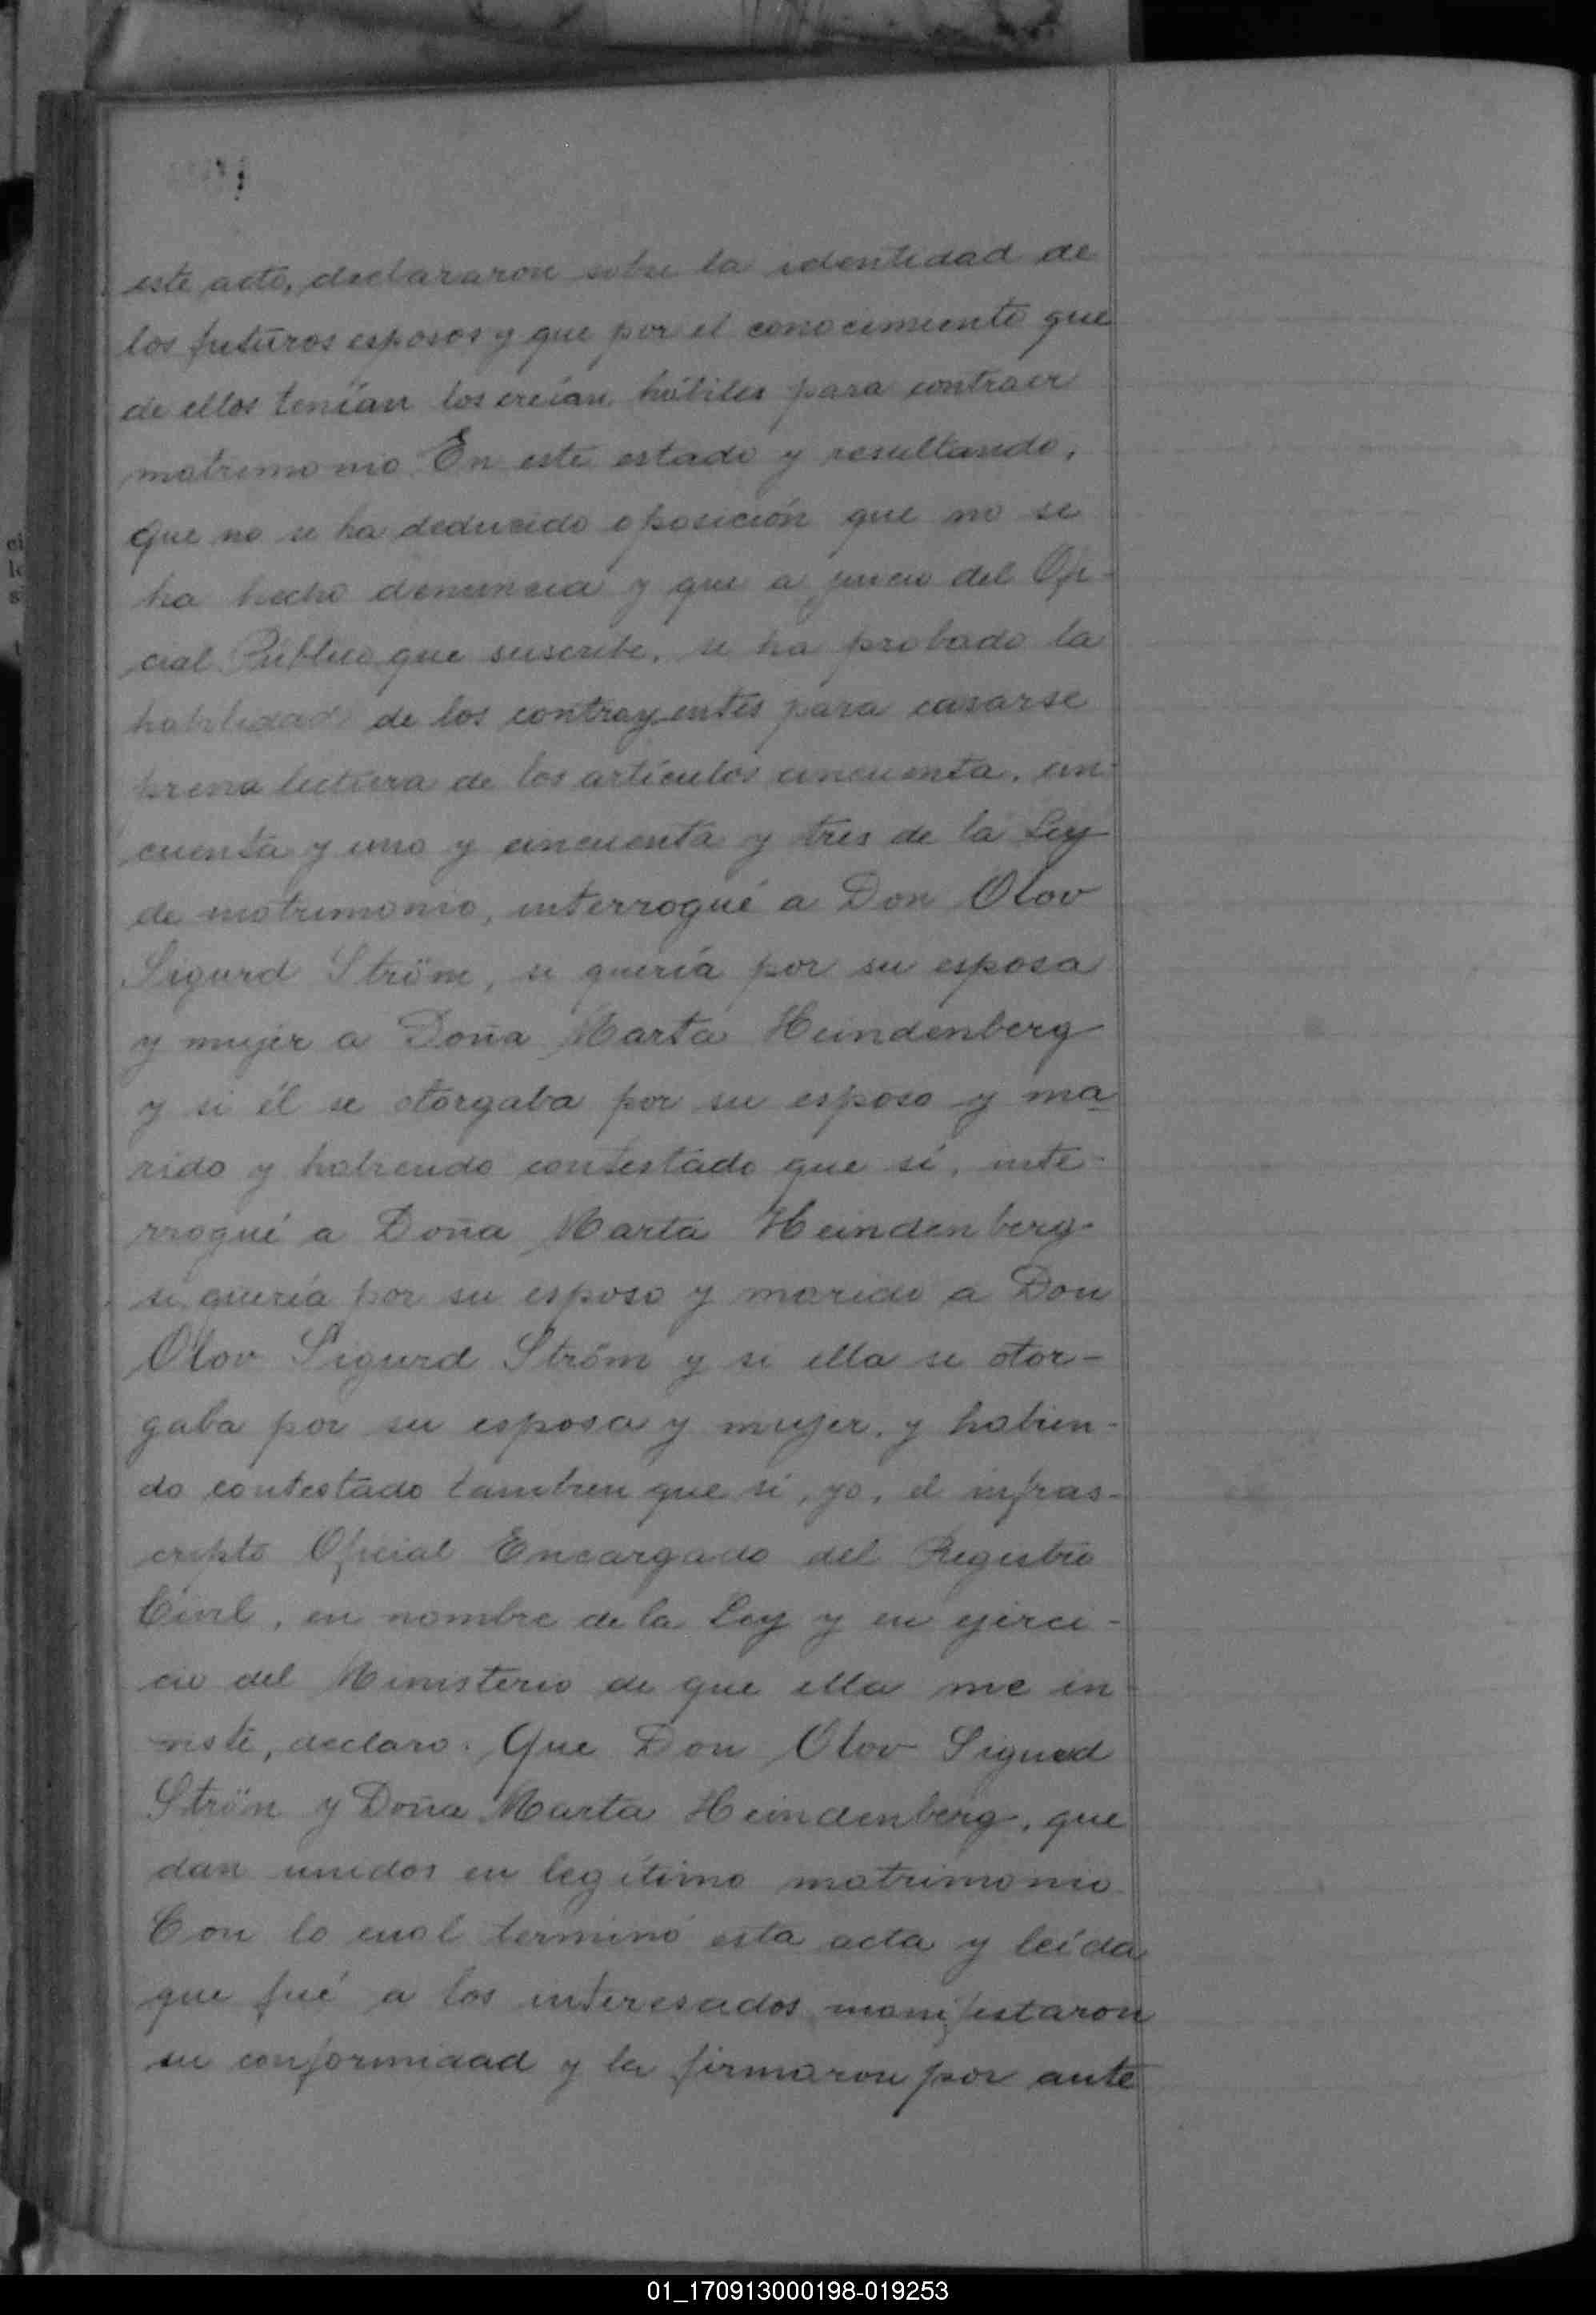 este acto, declararon sobre la identidad de
los futuros esposos y que por el conocimiento que
de ellos tenían los creían hábiles para contraer
matrimonio. En este estado y resultando,
Que no se ha deducido oposición que no se
ha hecho denuncia y que a juicio del Ofi-
cial Público que suscribe, se ha probado la
habilidad de los contrayentes para casarse
previa lectura de los artículos cincuenta, cin-
cuenta y uno y cincuenta y tres de la Ley
de matrimonio, interrogué a Don Olov
Sigurd Ström, si quería por su esposa
y mujer a Doña Marta Heindenberg
y si él se otorgaba por su esposo y ma
rido y habiendo contestado que sí, inte-
rrogué a Doña Marta Heindenberg
si quería por su esposo y marido a Don
Olov Sigurd Ström y si ella se otor-
gaba por su esposa y mujer, y habien-
do contestado tambien que sí, yo, el infras-
cripto Oficial Encargado del Registro
Civil, en nombre de la Ley y en ejerci-
cio del Ministerio de que ella me in-
viste, declaro. Que Don Olov Sigurd
Strön y Doña Marta Heindenberg, que
dan unidos en legítimo matrimonio.
Con lo cual terminó esta acta y leída
que fué a los interesados manifestaron
su conformidad y la firmaron por ante
01_170913000198-019253